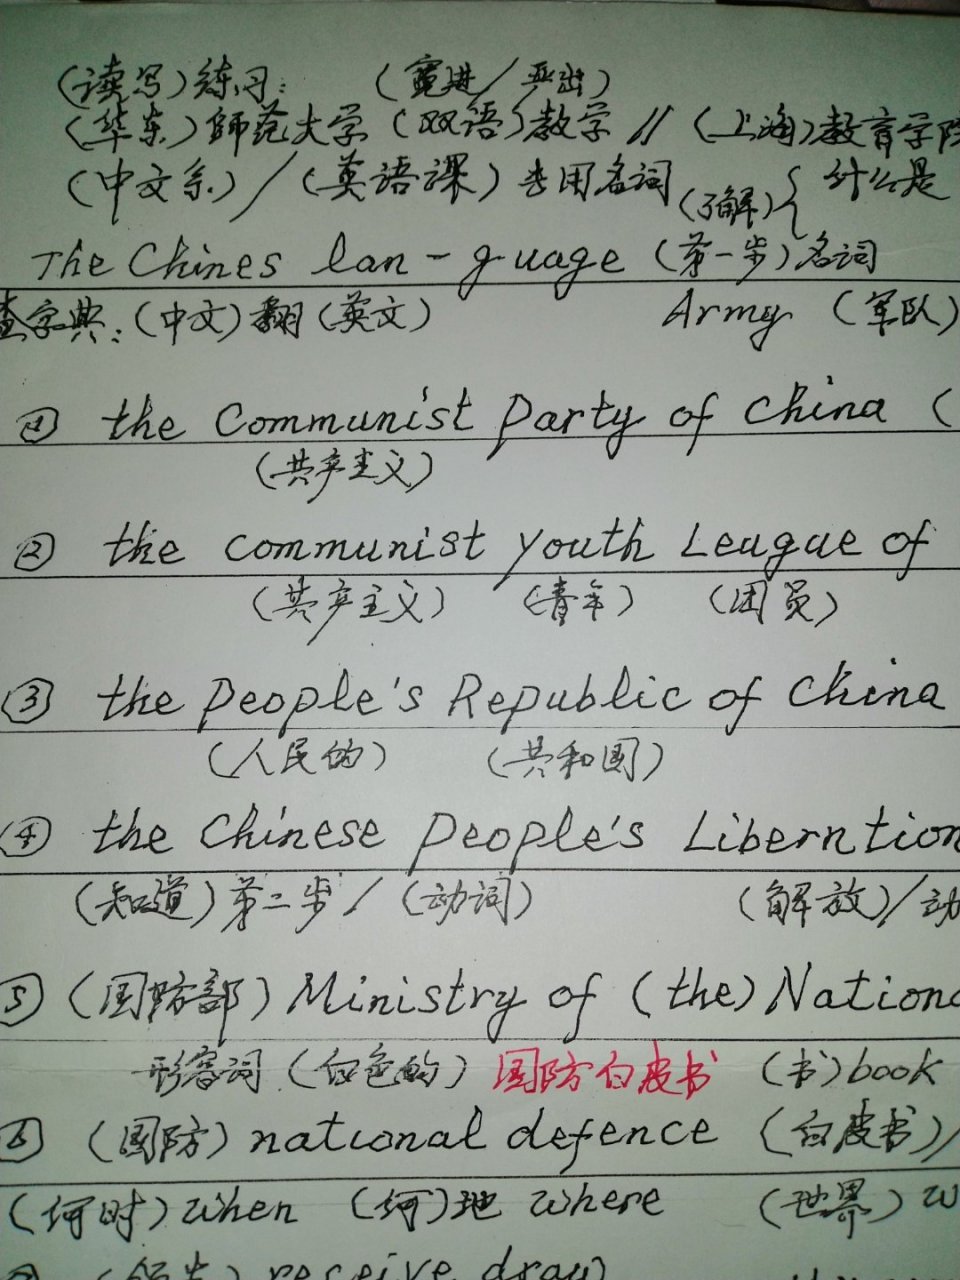 （读写）练习：（宽进/严出）
（华东）師范大学（双语）教学 //（上海）教育学院
（中文系）/（英语课）专用名词（了解）{什么是
The Chines lan-guage（第一步）名词
查字典：（中文）翻（英文） Army （军队）
① the Communist Party of China （
（共产主义）
② the communist youth League of
（共产主义） （青年） （团员）
③ the People's Republic of China
（人民的） （共和国）
④ the Chinese People's Liberntion
（知道）第二步/（动词） （解放）/动
⑤（国防部）Ministry of (the) Nation
形容词（白色的）国防白皮书 （书）book
⑥（国防）national defence （白皮书）/
（何时）when （何）地 where （世界）w
receive draw